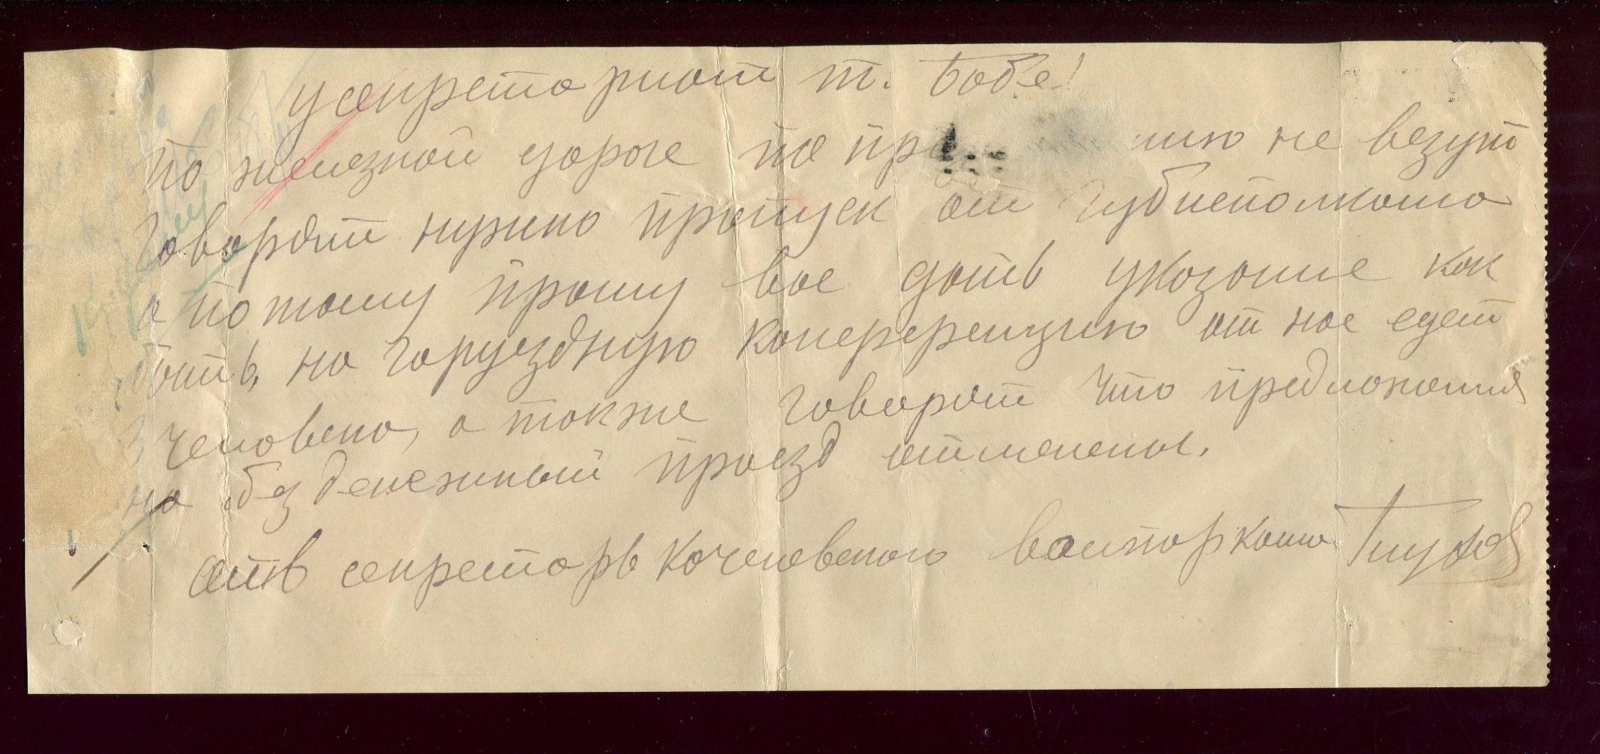 усекретариат т. Бобе!
по железной дороге по нию не везут
говорят нужно пропуск от губисполкома
а потому прошу вас дать указание как
быть, на горуездную конференцию от нас едет
3 человека, а также говорят что предложения
на безденежный проезд отменены.
отв секретарь Кочковского волпаркома